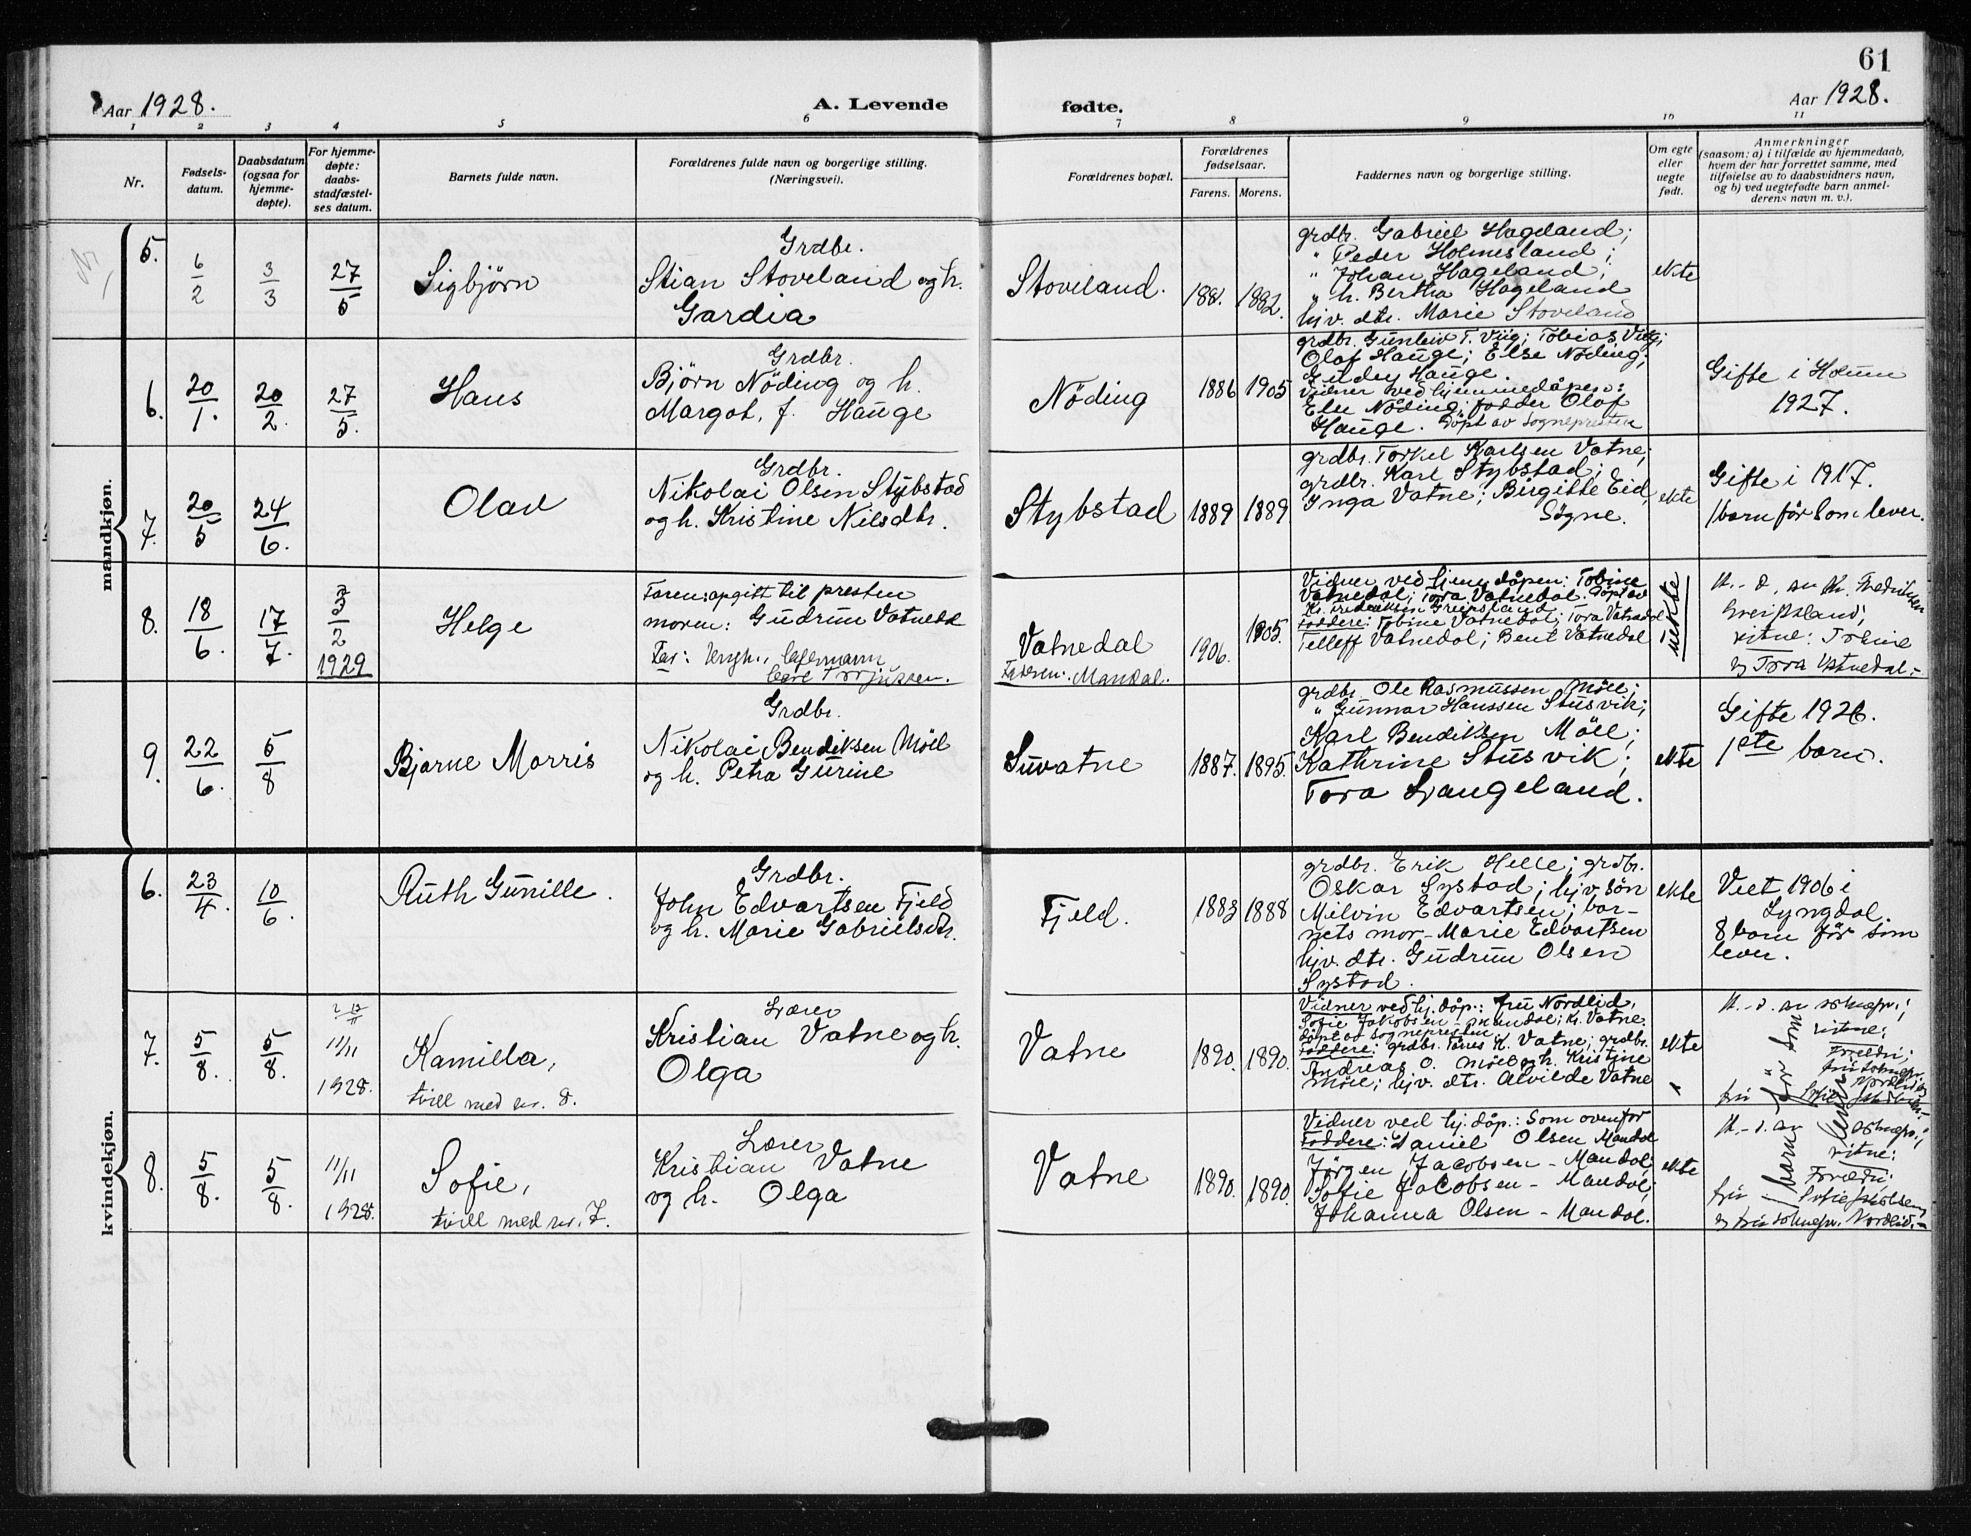 61
Aar 1928.
A. Levende
fødte.
Aar 1928.
1 2 3 4 5 6 7 8 9 10 11
Nr.
Fødsels-
datum.
Daabsdatum
(ogsaa for
hjemme-
døpte).
For hjemme-
døpte:
daabs-
stadfæstel-
ses datum.
Barnets fulde navn.
Forældrenes fulde navn og borgerlige stilling.
(Næringsvei).
Forældrenes bopæl.
Forældrenes
fødselsaar.
Farens. Morens.
Faddernes navn og borgerlige stilling.
Om egte
eller
uegte
født.
Anmerkninger
(saasom: a) i tilfælde av hjemmedaab,
hvem der har forrettet samme, med
tilføielse av to daabsvidners navn,
og b) ved uegtefødte barn anmel-
derens navn m. v.).
mandkjøn.
5.
6/2
3/3
27/5
Sigbjørn
Grdbr.
Stian Stoveland og h.
Gardia
Stoveland.
1881. 1882.
grdbr. Gabriel Hageland;
" Peder Holmesland;
" Johan Hageland;
" h. Bertha Hageland
hjv. dtr. Marie Stoveland
ekte
6.
20/1.
20/2.
27/5.
Hans
Grdbr.
Bjørn Nöding og h.
Margot, f. Hauge
Nöding
1886 1905
grdbr. Gunleiv T. Viig; Tobias Viig;
Olaf Hauge; Else Nöding;
Hauge.
Vidner ved hjemmedåpen:
Else Nöding; fadder Olaf
Hauge. Döpt av Sognepresten
Gifte i Holum
1927.
7.
20/5
24/6.
Olav
Grdbr.
Nikolai Olsen Stybstad
og h. Kristine Nilsdtr.
Stybstad
1889 1889
grdbr. Torkel Karlsen Vatne;
grdbr. Karl Stybstad;
Inga Vatne; Birgitte Eid,
Søgne.
ekte
Gifte i 1917.
1 barn för som lever.
8.
18/6.
17/7.
3/2
1929
Helge
Faren: opgitt til presten
moren: Gudrun Vatnedal
Far:
Carl Torjussen.
Vatnedal
Faderen: Mandal.
1906. 1905.
Vidner ved hjem. dåpen: Tobine
Vatnedal; Tora Vatnedal. Döpt av
Kr. Fredriksen Greipsland
Faddere: Tobine Vatnedal; Tora Vatnedal
Telleff Vatnedal; Bent Vatnedal
uekte
H. - d. av Kr. Fredriksen
Greipsland;
vitne: Tobine
og Tora Vatnedal.-
9.
22/6.
5/8
Bjarne Morris
Grdbr.
Nikolai Bendiksen Möll
og h. Petra Gurine
Suvatne
1887. 1895.
grdbr. Ole Rasmussen Möll;
" Gunnar Hanssen Stusvik;
Karl Bendiksen Möll;
Kathrine Stusvik;
Tora Ljangeland.
ekte
Gifte 1926.
1ste barn.
kvindekjøn.
6.
23/4.
10/6.
Ruth Gunille.
Grdbr.
John Edvartsen Fjeld
og h. Marie Gabrielsdtr.
Fjeld.
1883 1888
grdbr. Erik Helle; grdbr.
Oskar Systad; hjv. sön
Milvin Edvartsen; bar-
nets mor - Marie Edvartsen
hjv. dtr. Gudrun Olsen
Systad.
ekte
Viet 1906 i
Lyngdal.
8 barn för som
lever.
7.
5/8.
5/8.
11/11
1928.
Kamilla,
tvill med nr. 8.
Lærer
Kristian Vatne og h.
Olga
Vatne
1890. 1890.
Vidner ved hj. döp.: fru Nordlid,
Sofie Jakobsen - Mandal; K. Vatne.
Döpt av Sognepresten
Faddere: grdbr. Tönes K. Vatne; grdbr.
Andreas O. Möll og h. Kristine
Möll; hjv. dtr. Alvilde Vatne
ekte
H. - d. av sokneprs.;
vitne:
Foreldri;
fru soknepr.
Nordlid og
8.
5/8.
5/8.
11/11
1928.
Sofie,
tvill med nr. 7.
Lærer
Kristian Vatne
og h. Olga
Vatne
1890. 1890.
Vidner ved hj. döp.: Som ovenfor
Faddere: Daniel Olsen Mandal
Jörgen Jacobsen - Mandal;
Sofie Jacobsen - Mandal;
Johanna Olsen - Mandal.
ekte
H. - d. av soknepr.;
vitne:
Foreldri;
og fru soknepr. Nordlid.-
1 barn för som lever